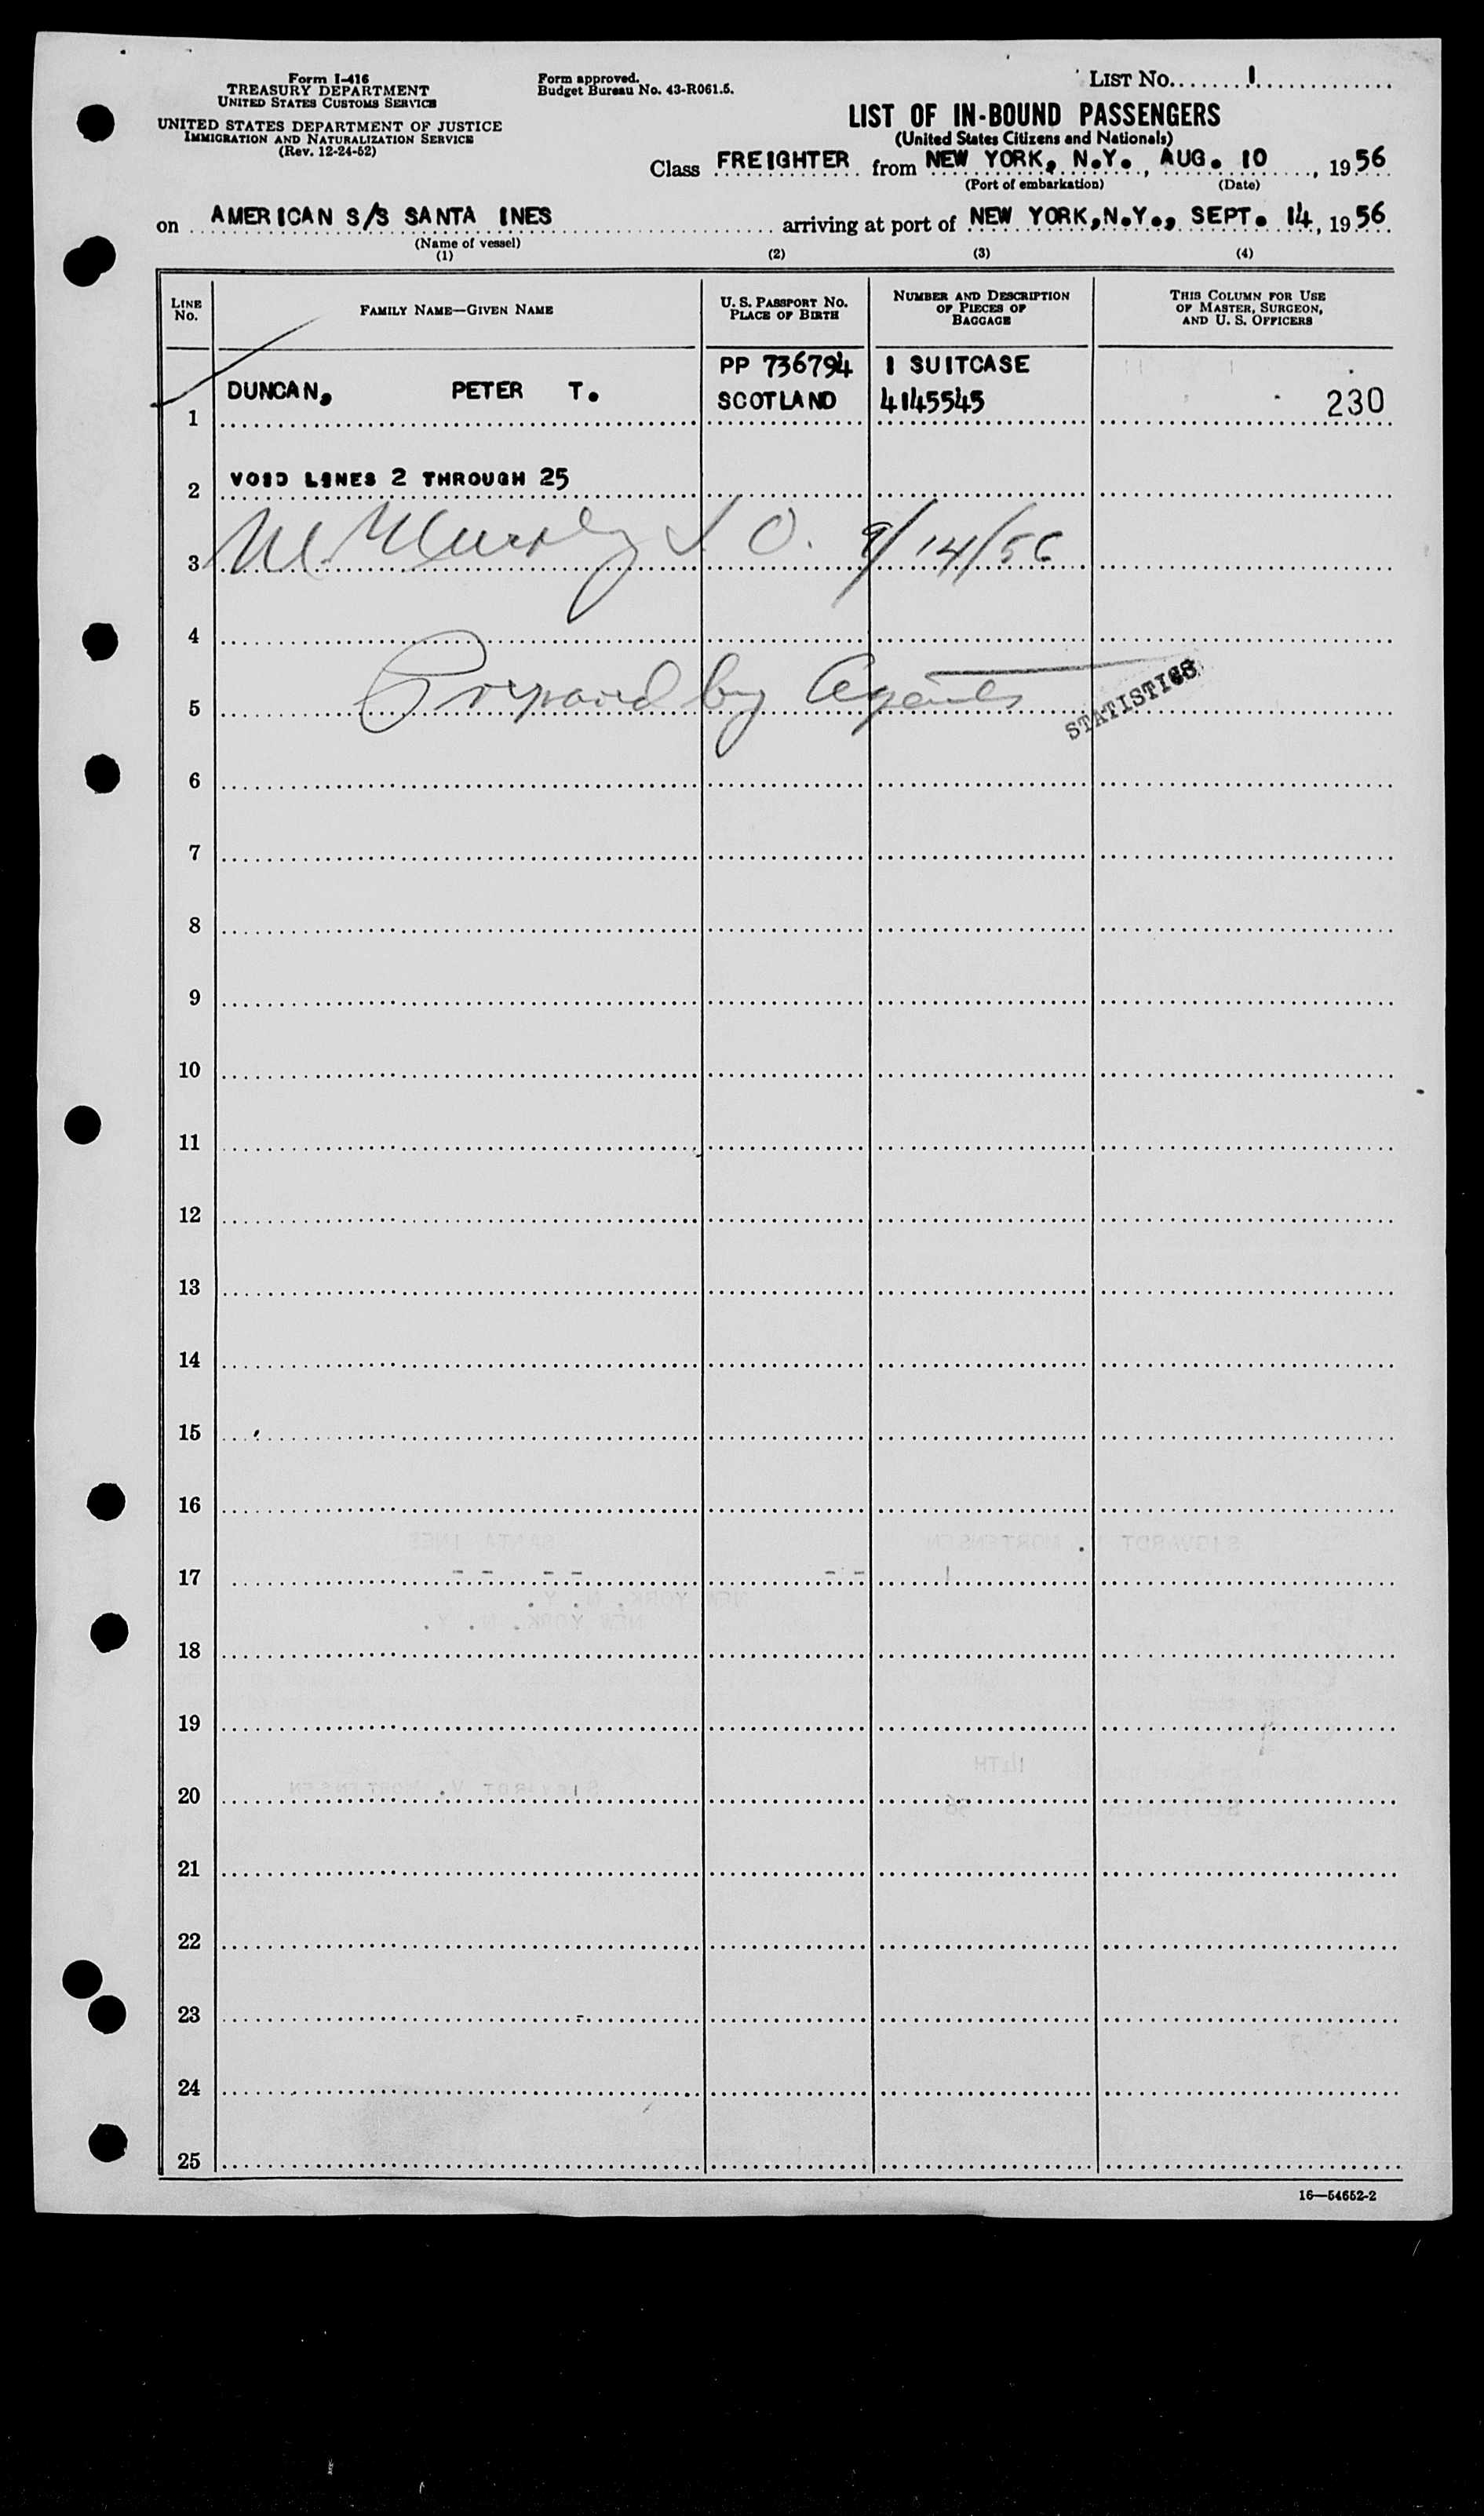 Form I-416
TREASURY DEPARTMENT
UNITED STATES CUSTOMS SERVICE
UNITED STATES DEPARTMENT OF JUSTICE
IMMIGRATION AND NATURALIZATION SERVICE
(Rev. 12-24-52)
Form approved.
Budget Bureau No. 43-R061.5.
LIST No. 1
LIST OF IN-BOUND PASSENGERS
(United States Citizens and Nationals)
Class FREIGHTER from NEW YORK, N.Y., AUG. 10, 1956
(Port of embarkation) (Date)
on AMERICAN S/S SANTA INES arriving at port of NEW YORK,N.Y., SEPT. 14, 1956
(Name of vessel)
(1) (2) (3) (4)
LINE No. FAMILY NAME—GIVEN NAME U. S. PASSPORT NO. PLACE OF BIRTH NUMBER AND DESCRIPTION OF PIECES OF BAGGAGE THIS COLUMN FOR USE OF MASTER, SURGEON, AND U. S. OFFICERS
PP 736794 1 SUITCASE
1 DUNCAN, PETER T. SCOTLAND 4145545 230
2 VOID LINES 2 THROUGH 25
3 M Murphy I.O. 9/14/56
4
5 Prepaid by Agents STATISTICS
6
7
8
9
10
11
12
13
14
15
16
17
18
19
20
21
22
23
24
25
16—54652-2